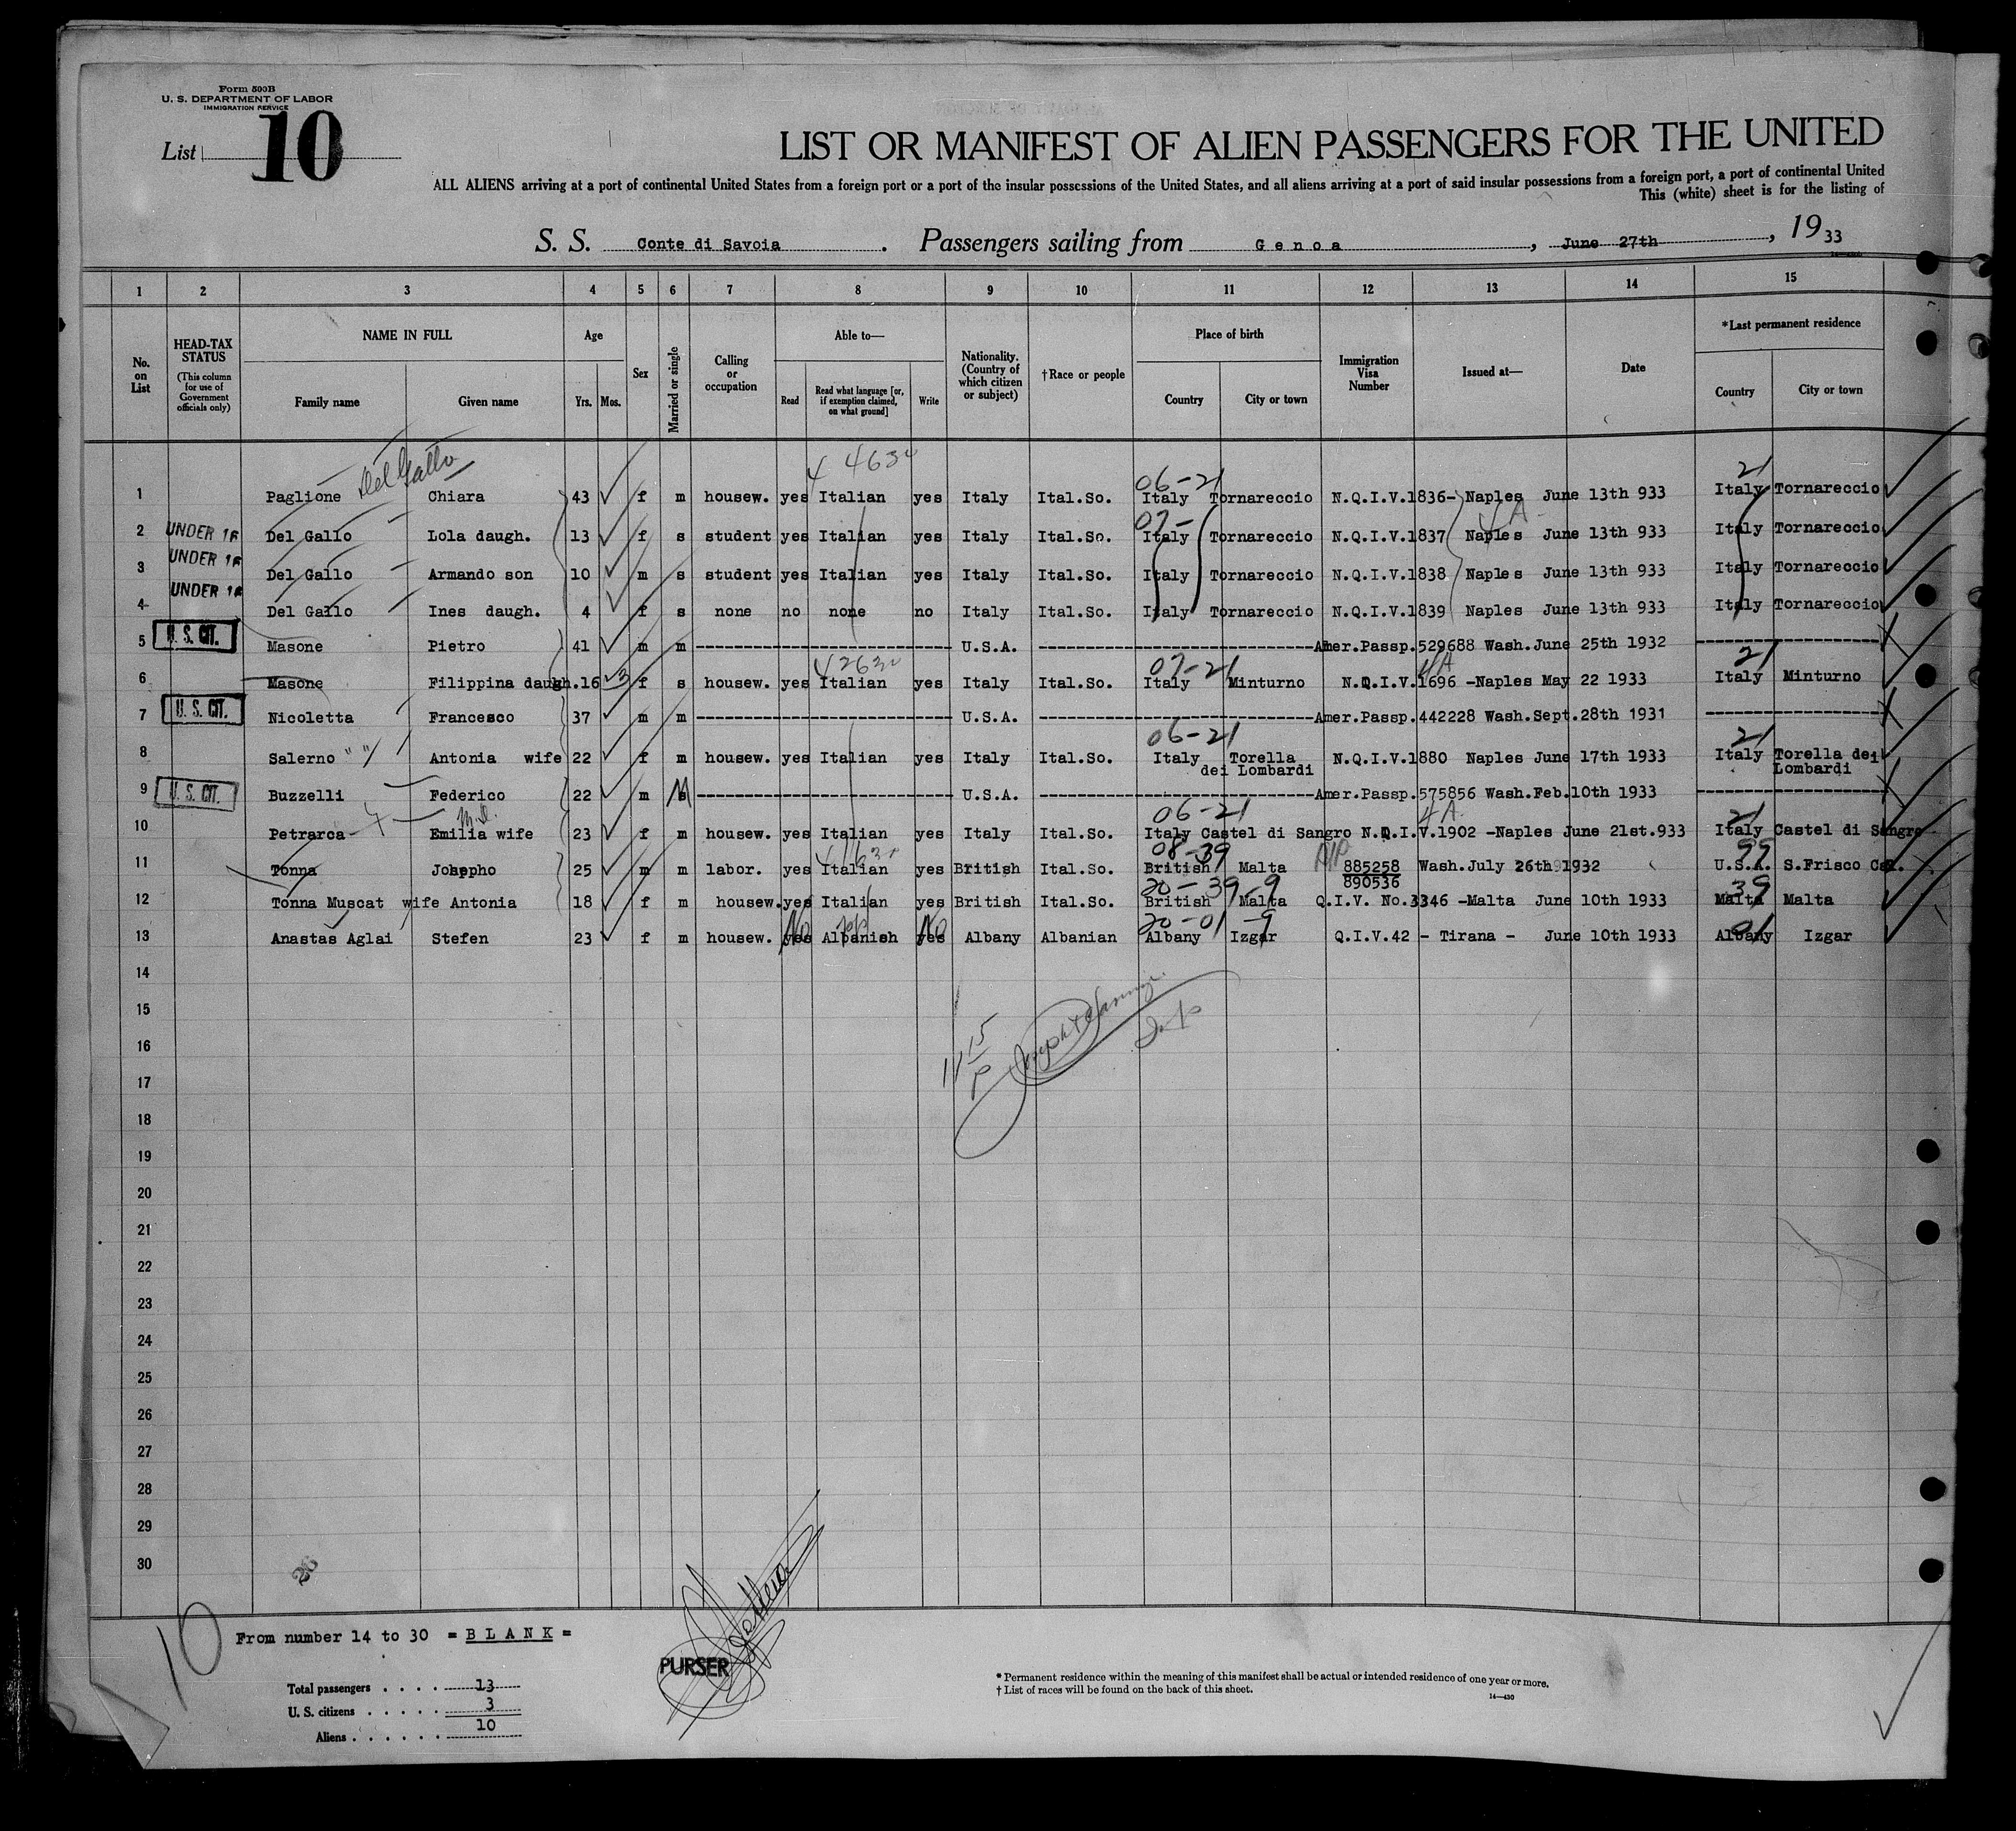 Form 500B
U. S. DEPARTMENT OF LABOR
IMMIGRATION SERVICE
List 10
LIST OR MANIFEST OF ALIEN PASSENGERS FOR THE UNITED
ALL ALIENS arriving at a port of continental United States from a foreign port or a port of the insular possessions of the United States, and all aliens arriving at a port of said insular possessions from a foreign port, a port of continental United
This (white) sheet is for the listing of
S. S. Conte di Savoia . Passengers sailing from Genoa , June 27th , 1933
1 2 3 4 5 6 7 8 9 10 11 12 13 14 15
No. on List
HEAD-TAX STATUS (This column for use of Government officials only)
NAME IN FULL
Family name Given name
Age
Yrs. Mos.
Sex
Married or single
Calling or occupation
Able to—
Read Read what language [or, if exemption claimed, on what ground] Write
Nationality. (Country of which citizen or subject)
†Race or people
Place of birth
Country City or town
Immigration Visa Number
Issued at—
Date
*Last permanent residence
Country City or town
Del Gallo
06-21 21
1 Paglione Chiara 43 f m housew. yes Italian yes Italy Ital.So. Italy Tornareccio N.Q.I.V.1836- Naples June 13th 933 Italy Tornareccio
07-
2 UNDER 16 Del Gallo Lola daugh. 13 f s student yes Italian yes Italy Ital.So. Italy Tornareccio N.Q.I.V.1837 Naples June 13th 933 Italy Tornareccio
3 UNDER 16 Del Gallo Armando son 10 m s student yes Italian yes Italy Ital.So. Italy Tornareccio N.Q.I.V.1838 Naples June 13th 933 Italy Tornareccio
4 UNDER 16 Del Gallo Ines daugh. 4 f s none no none no Italy Ital.So. Italy Tornareccio N.Q.I.V.1839 Naples June 13th 933 Italy Tornareccio
5 U. S. CIT. Masone Pietro 41 m m U.S.A. Amer.Passp.529688 Wash.June 25th 1932
07-21 4A 21
6 Masone Filippina daugh.16 3 f s housew. yes Italian yes Italy Ital.So. Italy Minturno N.Q.I.V.1696 -Naples May 22 1933 Italy Minturno
7 U. S. CIT. Nicoletta Francesco 37 m m U.S.A. Amer.Passp.442228 Wash.Sept.28th 1931
06-21 21
8 Salerno " " Antonia wife 22 f m housew. yes Italian yes Italy Ital.So. Italy Torella dei Lombardi N.Q.I.V.1880 Naples June 17th 1933 Italy Torella dei Lombardi
9 U. S. CIT. Buzzelli Federico 22 m M U.S.A. Amer.Passp.575856 Wash.Feb.10th 1933
06-21 4A 21
10 Petrarca Emilia wife 23 f m housew. yes Italian yes Italy Ital.So. Italy Castel di Sangro N.Q.I.V.1902 -Naples June 21st.933 Italy Castel di Sangro
08-39 99
11 Tonna Joseppho 25 m m labor. yes Italian yes British Ital.So. British Malta 885258 890536 Wash.July 26th 1932 U.S.A. S.Frisco Cal.
20-39-9 39
12 Tonna Muscat wife Antonia 18 f m housew. yes Italian yes British Ital.So. British Malta Q.I.V. No.3346 -Malta June 10th 1933 Malta Malta
20-01-9 01
13 Anastas Aglai Stefen 23 f m housew. yes No Albanish yes No Albany Albanian Albany Izgar Q.I.V.42 - Tirana - June 10th 1933 Albany Izgar
14
15
16
17
18
19
20
21
22
23
24
25
26
27
28
29
30
26
10
From number 14 to 30 = BLANK =
Total passengers . . . . 13
U. S. citizens . . . . . 3
Aliens . . . . . . 10
PURSER
* Permanent residence within the meaning of this manifest shall be actual or intended residence of one year or more.
† List of races will be found on the back of this sheet.
14—430